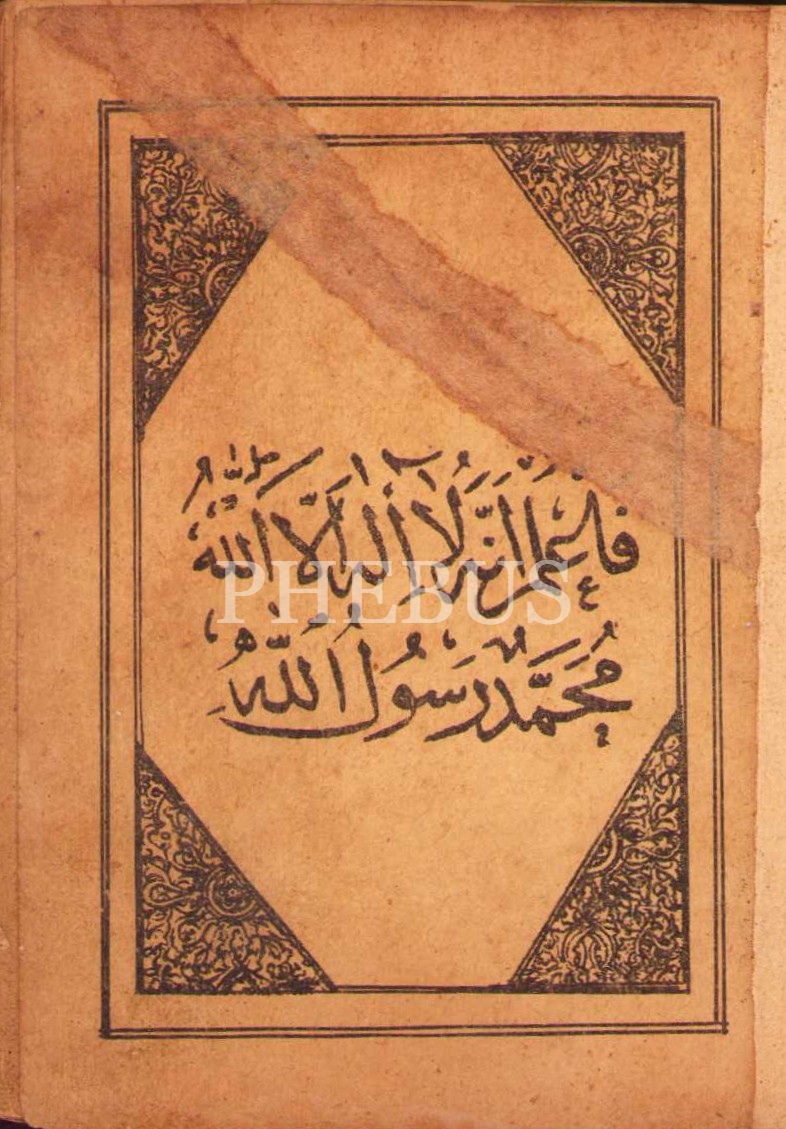 فَاعْلَمْ اَنَّهُ لَا اِلٰهَ اِلَّا اللّٰهُ
PHEBUS
مُحَمَّدٌ رَسُولُ اللّٰهِ